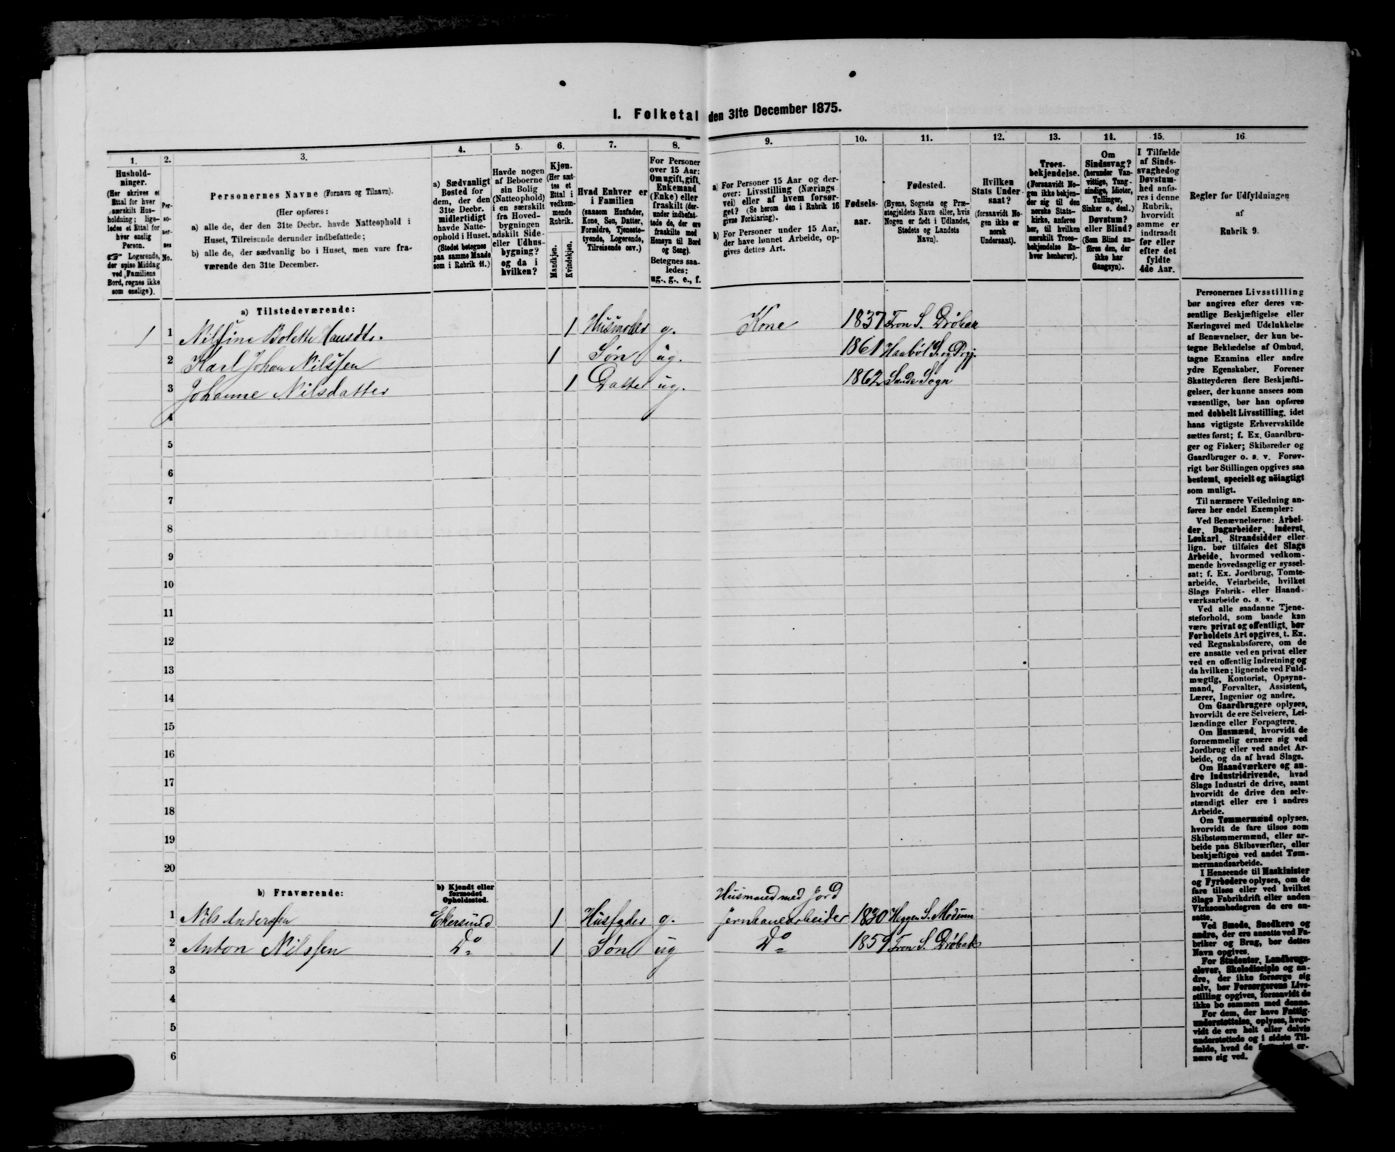 I. Folketal den 31te December 1875.
1. 2. 3. 4. 5. 6. 7. 8. 9. 10. 11. 12. 13. 14. 15. 16.
Hushold-
ninger.
(Her skrives et
Ettal for hver
særskilt Hus-
holdning; lige-
ledes et Ettal for
hver enslig
Person.
Logerende,
der spise Middag
ved Familiens
Bord, regnes ikke
som enslige).
Per-
so-
ner-
nes
No.
Personernes Navne (Fornavn og Tilnavn).
(Her opføres:
a) alle de, der den 31te Decbr. havde Natteophold i
Huset, Tilreisende derunder indbefattede;
b) alle de, der sædvanlig bo i Huset, men vare fra-
værende den 31te December.
a) Sædvanligt
Bosted for
dem, der den
31te Decbr.
midlertidigt
havde Natte-
ophold i Huset.
(Stedet betegnes
paa samme Maade
som i Rubrik 11.)
Havde nogen
af Beboerne
sin Bolig
(Natteophold)
i en særskilt
fra Hoved-
bygningen
adskilt Side-
eller Udhus-
bygning?
og da i
hvilken?
Kjøn.
(Her sæt-
tes et
Ettal i
vedkom-
mende
Rubrik.
Mandkjøn.
Kvindekjøn.
Hvad Enhver er
i Familien
(saasom Husfader,
Kone, Søn, Datter,
Forældre, Tjeneste-
tyende, Logerende,
Tilreisende osv.)
For Personer
over 15 Aar:
Om ugift, gift,
Enkemand
(Enke) eller
fraskilt (der-
under indbefat-
tede de, der ere
fraskilte med
Hensyn til Bord
og Seng)
Betegnes saa-
ledes:
ug., g., e., f.
a) For Personer 15 Aar og der-
over: Livsstilling (Nærings
vei) eller af hvem forsør-
get? (Se herom den i Rubrik 16
givne Forklaring).
b) For Personer under 15 Aar,
der have lønnet Arbeide, op-
gives dettes Art.
Fødsels-
aar.
Fødested.
(Byens, Sognets og Præ-
stegjeldets Navn eller, hvis
Nogen er født i Udlandet,
Stedets og Landets
Navn).
Hvilken
Stats Under-
saat?
(forsaavidt No-
gen ikke er
norsk
Undersaat).
Troes-
bekjendelse.
(Forsaavidt No-
gen ikke bekjen-
der sig til den
norske Stats-
kirke, anføres
her, til hvilken
særskilt Troes-
bekjendelse En-
hver henhører).
Om
Sindssvag?
(herunder Van-
vittige, Tung-
sindige, Idioter,
Tullinger,
Sinker o. desl.)
Døvstum?
eller Blind?
(Som Blind an-
føres den, der
ikke har
Gangsyn).
I Tilfælde
af Sinds-
svaghed og
Døvstum-
hed anfø-
res i denne
Rubrik,
hvorvidt
samme er
indtraadt
før eller
efter det
fyldte
4de Aar.
Regler for Udfyldningen
af
Rubrik 9.
a) Tilstedeværende:
1 1 Nilsine Bolette Knudts. 1 Husmoder g. Kone 1837 Fron S. Drøbak
2 Karl Johan Nilssen 1 Søn ug. 1861
3 Johanne Nilsdatter 1 Datter ug. 1862 Sande Sogn
4
5
6
7
8
9
10
11
12
13
14
15
16
17
18
19
20
b) Fraværende:
b) Kjendt eller
formodet
Opholdssted.
Husmand med Jord
1 Nils Andersen Ekersund 1 Husfader g. Jernbanearbeider 1830 Heggen S. Modum
2 Anton Nilssen Do 1 Søn ug Do 1859 Fron S. Drøbak
3
4
5
6
Personernes Livsstilling
bør angives efter deres væ-
sentlige Beskjæftigelse eller
Næringsvei med Udelukkelse
af Benævnelser, der kun be-
tegne Beklædelse af Ombud,
tagne Examina eller andre
ydre Egenskaber. Forener
Skatteyderen flere Beskjæfti-
gelser, der kunne ansees som
væsentlige, bør han opføres
med dobbelt Livsstilling, idet
hans vigtigste Erhvervskilde
sættes først; f. Ex. Gaardbru-
ger og Fisker; Skibsreder og
Gaardbruger o. s. v. Forøv-
rigt bør Stillingen opgives saa
bestemt, specielt og nøiagtigt
som muligt.
Til nærmere Veiledning an-
føres her endel Exempler:
Ved Benævnelserne: Arbei-
der, Dagarbeider, Inderst,
Løskarl, Strandsidder eller
lign. bør tilføies det Slags
Arbeide, hvormed vedkom-
mende hovedsagelig er syssel-
sat; f. Ex. Jordbrug, Tomte-
arbeide, Veiarbeide, hvilket
Slags Fabrik- eller Haand-
værksarbeide o. s. v.
Ved alle saadanne Tjene-
steforhold, som baade kan
være privat og offentligt, bør
Forholdets Art opgives, t. Ex.
ved Regnskabsførere, om de
ere ansatte ved en privat eller
ved en offentlig Indretning og
da hvilken; lignende ved Fuld-
mægtig, Kontorist, Opsyns-
mand, Forvalter, Assistent,
Lærer, Ingeniør og andre.
Om Gaardbrugere oplyses,
hvorvidt de ere Selveiere, Lei-
lændinge eller Forpagtere.
Om Husmænd, hvorvidt de
fornemmelig ernære sig ved
Jordbrug eller ved andet Ar-
beide, og da af hvad Slags.
Om Haandværkere og an-
dre Industridrivende, hvad
Slags Industri de drive, samt
hvorvidt de drive den selv-
stændigt eller ere i andres
Arbeide.
Om Tømmermænd oplyses,
hvorvidt de fare tilsøs som
Skibstømmermænd, eller ar-
beide paa Skibsværfter, eller
beskjæftiges ved andet Tøm-
mermandsarbeide.
I Henseende til Maskinister
og Fyrbødere oplyses, om de
fare tilsøs eller ved hvilket
Slags Fabrikdrift eller anden
Virksomhedsgren de ere an-
satte.
Ved Smede, Snedkere og
andre, der ere ansatte ved Fa-
briker og Brug, bør dettes
Navn opgives.
For Studenter, Landbrugs-
elever, Skoledisciple og an-
dre, der ikke forsørge sig
selv, bør Forsørgerens Livs-
stilling opgives, forsaavidt de
ikke bo sammen med denne.
For dem, der have Fattig-
understøttelse, oplyses, hvor-
vidt de ere helt eller delvis
understøttede og i sidste Til-
fælde, hvad de er-
nære sig ved.